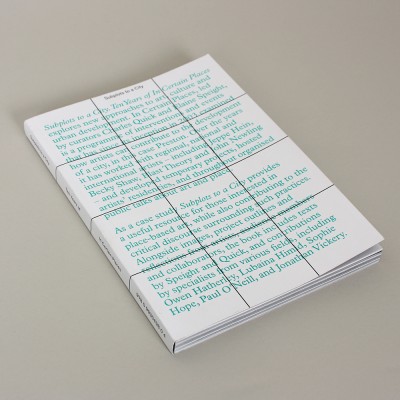 Subplots to a City
Subplots to a City. Ten Years of In Certain Places
explores new approaches to art, culture and
urban development. In Certain Places, led
by curators Charles Quick and Elaine Speight,
is a programme of interventions and events
that has
how artists can contribute to the development
of a city, in this case Preston. Over the years
it has worked with regional, national and
international artists – including Jeppe Hein,
Becky Shaw, Blast Theory and Newling
– and developed temporary projects, hosted
artists' residencies and throughout organised
public talks about art and place.
As a case study, Subplots to a City provides
a useful resource for those interested in
place-based art, while also contributing to the
critical discourse surrounding such practices.
Alongside images, project outlines and
reflections
and collaborators, the book includes texts
by Speight and Quick, and contributions
by specialists from various fields, including
Owen Hatherley, Lubaina Himid, Sophie
Hope, Paul O'Neill, and Jonathan Vickery.